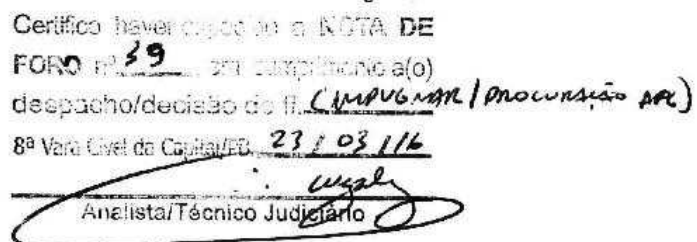 Certifico haver a NOTA DE
FORO nº 39 em cumprimento a(o)
despacho/decisão de fl. (IMPUGNAR /
8ª Vara Cível da Capital/PB 23 / 03 / 16
Analista/Técnico Judiciário